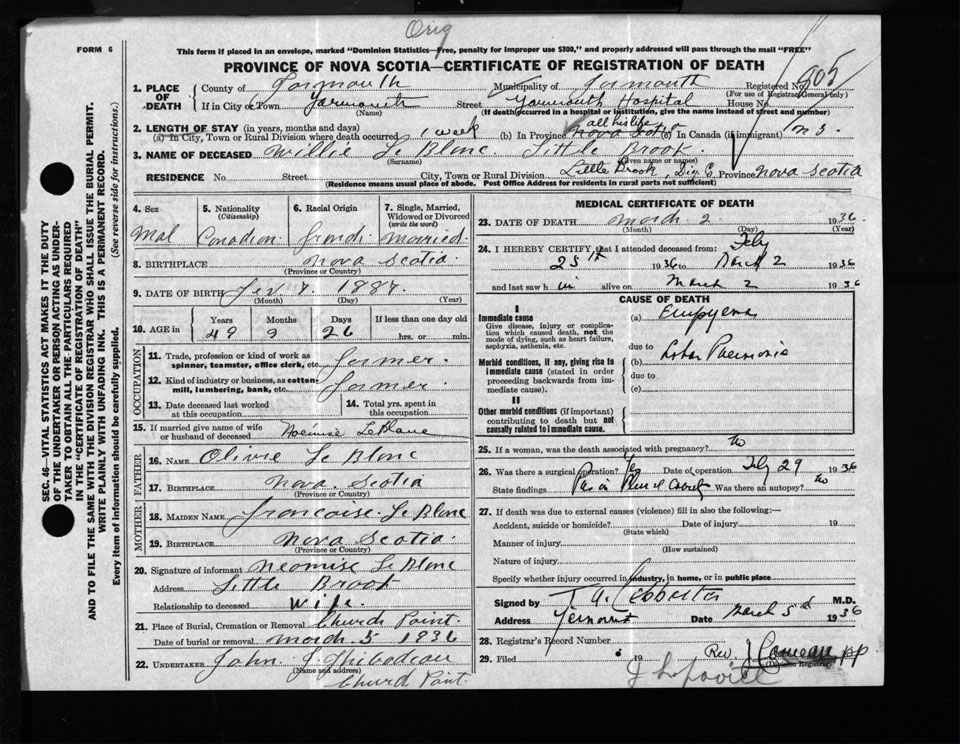 Orig
FORM 6
This form if placed in an envelope, marked "Dominion Statistics—Free, penalty for improper use $300," and properly addressed will pass through the mail "FREE"
PROVINCE OF NOVA SCOTIA—CERTIFICATE OF REGISTRATION OF DEATH
905
1. PLACE OF DEATH
County of Yarmouth Municipality of Yarmouth Registered No.
(For use of Registrar General only)
If in City or Town Yarmouth Street Yarmouth Hospital House No.
(Name) (If death occurred in a hospital or institution, give the name instead of street and number)
2. LENGTH OF STAY (in years, months and days) all his life
(a) In City, Town or Rural Division where death occurred 1 week (b) In Province Nova Scotia (c) In Canada (if immigrant)
3. NAME OF DECEASED Willie Le Blanc Little Brook.
(Surname) (Given name or names)
RESIDENCE No. Street City, Town or Rural Division Little Brook, Dig. C Province Nova Scotia
(Residence means usual place of abode. Post Office Address for residents in rural parts not sufficient)
4. Sex 5. Nationality (Citizenship) 6. Racial Origin 7. Single, Married, Widowed or Divorced (write the word)
Mal Canadian French Married.
8. BIRTHPLACE Nova Scotia.
(Province or Country)
9. DATE OF BIRTH Fev 7. 1887.
(Month) (Day) (Year)
10. AGE in Years Months Days If less than one day old
49 9 26 hrs. or min.
OCCUPATION
11. Trade, profession or kind of work as spinner, teamster, office clerk, etc. farmer.
12. Kind of industry or business, as cotton mill, lumbering, bank, etc. farmer.
13. Date deceased last worked at this occupation
14. Total yrs. spent in this occupation
15. If married give name of wife or husband of deceased LeBlanc
FATHER
16. NAME Olivie Le Blanc
17. BIRTHPLACE Nova Scotia
(Province or Country)
MOTHER
18. MAIDEN NAME Francoise Le Blanc
19. BIRTHPLACE Nova Scotia.
(Province or Country)
20. Signature of informant Neomise Le Blanc
Address Little Brook
Relationship to deceased Wife.
21. Place of Burial, Cremation or Removal Church Point.
Date of burial or removal March 5 1936
22. UNDERTAKER John J Thibodeau
(Name and address)
Church Point.
MEDICAL CERTIFICATE OF DEATH
23. DATE OF DEATH March 2 1936
(Month) (Day) (Year)
24. I HEREBY CERTIFY, that I attended deceased from: Feby
25th 1936 to March 2 1936
and last saw h im alive on March 2 1936
CAUSE OF DEATH
I
Immediate cause
Give disease, injury or complication which caused death, not the mode of dying, such as heart failure, asphyxia, asthenia, etc.
(a) Empyema
due to
Morbid conditions, if any, giving rise to immediate cause (stated in order proceeding backwards from immediate cause).
Lobar Pneumonia
(b)
due to
(c)
II
Other morbid conditions (if important) contributing to death but not causally related to immediate cause.
25. If a woman, was the death associated with pregnancy? No
26. Was there a surgical operation? Yes Date of operation Feby 29 1936
State findings Pus in Pleural Cavity Was there an autopsy? No
27. If death was due to external causes (violence) fill in also the following:—
Accident, suicide or homicide? Date of injury 19
(State which)
Manner of injury
(How sustained)
Nature of injury
Specify whether injury occurred in industry, in home, or in public place
Signed by M.D.
Address Yarmouth Date March 3d 1936
28. Registrar's Record Number
29. Filed 19 Rev. J Comeau pp
(Division Registrar)
SEC. 46—VITAL STATISTICS ACT MAKES IT THE DUTY OF THE UNDERTAKER OR PERSON ACTING AS UNDERTAKER TO OBTAIN ALL THE PARTICULARS REQUIRED IN THE "CERTIFICATE OF REGISTRATION OF DEATH"
AND TO FILE THE SAME WITH THE DIVISION REGISTRAR WHO SHALL ISSUE THE BURIAL PERMIT.
WRITE PLAINLY WITH UNFADING INK. THIS IS A PERMANENT RECORD.
Every item of information should be carefully supplied. (See reverse side for instructions.)